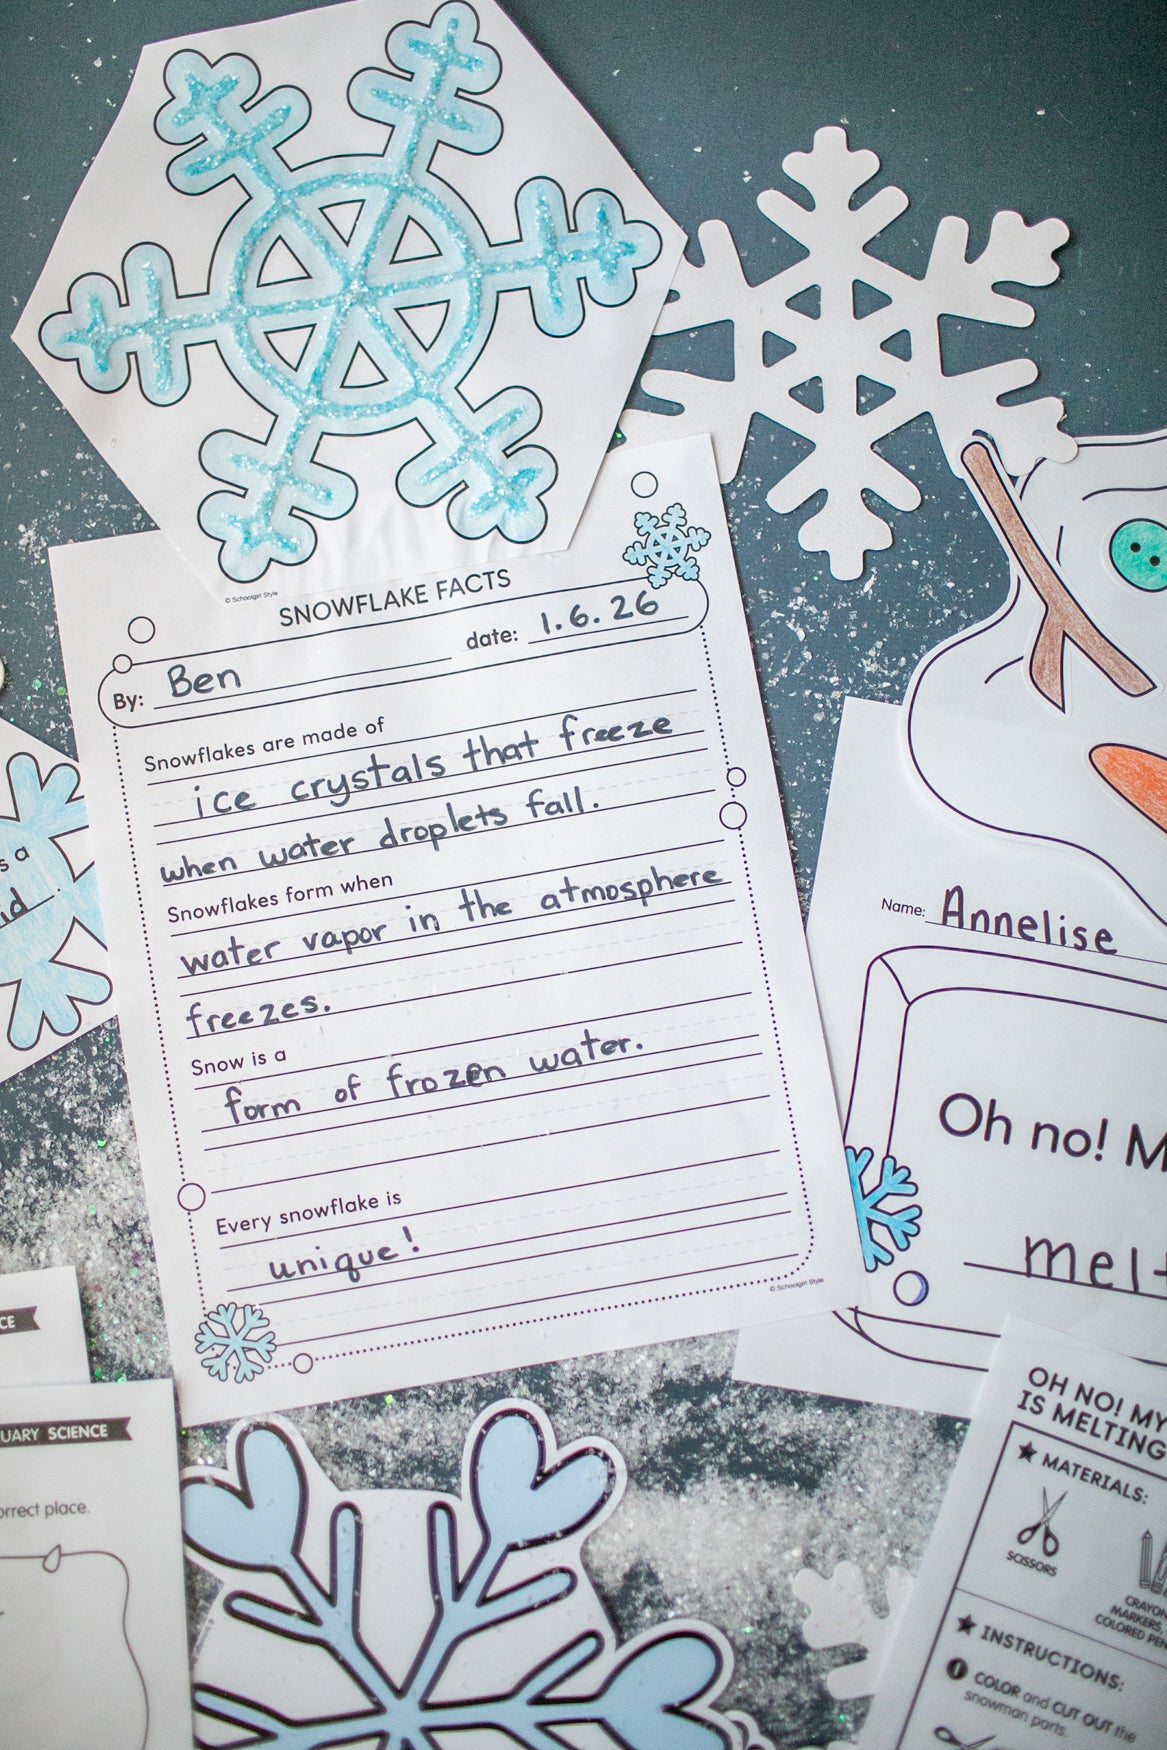 © Schoolgirl Style
SNOWFLAKE FACTS
date: 1.6.26
By: Ben
Snowflakes are made of
ice crystals that freeze
when water droplets fall.
Snowflakes form when
water vapor in the atmosphere
freezes.
Snow is a
form of frozen water.
Every snowflake is
unique!
© Schoolgirl Style
s a
id
Name: Annelise
Oh no! M
melt
CE
UARY SCIENCE
orrect place.
OH NO! MY
IS MELTING
MATERIALS:
SCISSORS
CRAYON
MARKERS,
COLORED PEN
INSTRUCTIONS:
1 COLOR and CUT OUT the
snowman parts.